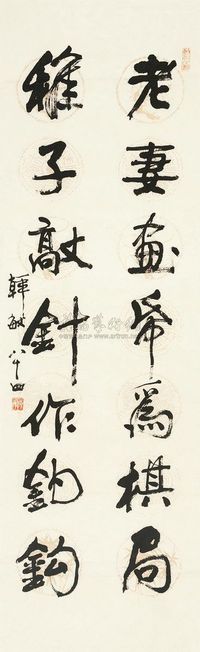 老妻畫帋爲棋局
稚子敲針作釣鉤
韓敏八十四